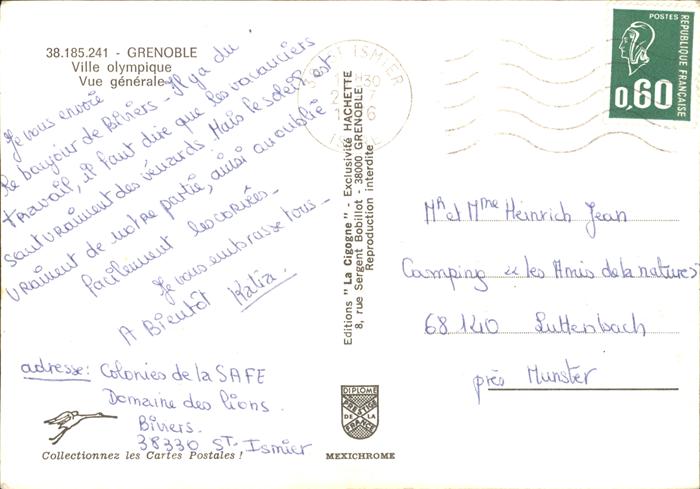 38.185.241 - GRENOBLE
Ville olympique
Vue générale
Je vous envoie
le bonjour de Biviers - Il y a du
travail, il faut dire que les vacanciers
sont vraiment des veinards. Mais le soleil est
vraiment de notre partie, ainsi on oublie
facilement les corvées -
Je vous embrasse tous -
A Bientôt Katia.
adresse: Colonies de la SAFE
Domaine des lions.
Biviers.
38330 St. Ismier
Collectionnez les Cartes Postales !
Editions "La Cigogne" - Exclusivité HACHETTE
8, rue Sergent Bobillot - 38000 GRENOBLE
Reproduction interdite
DIPLOME
PRESTIGE
DE LA
FRANCE
MEXICHROME
ISMIER
POSTES
REPUBLIQUE FRANÇAISE
0,60
Mr et Mme Heinrich Jean
Camping "les Amis de la nature"
68140 Luttenbach
près Munster